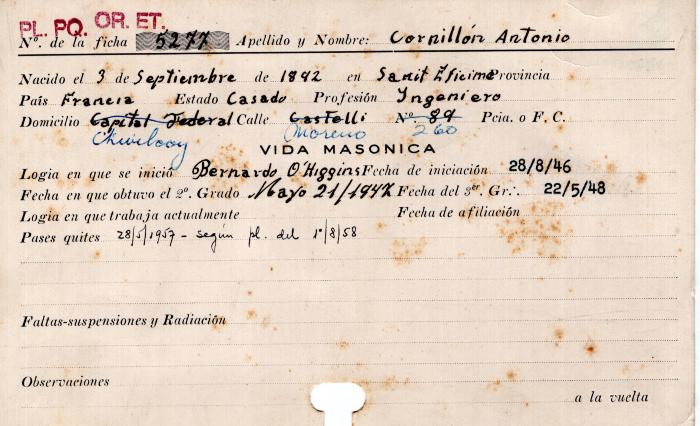 PL. PQ. OR. ET.
Nº. de la ficha 5277 Apellido y Nombre: Cornillón Antonio
Nacido el 3 de Septiembre de 1892 en Sanit Eficime Provincia
País Francia Estado Casado Profesión Yngeniero
Domicilio Capital Federal Calle Castelli Nº 89 Pcia. o F. C.
Chivilcoy Moreno 260
VIDA MASONICA
Logia en que se inició Bernardo O'Higgins Fecha de iniciación 28/8/46
Fecha en que obtuvo el 2º. Grado Mayo 21/1947 Fecha del 3er. Gr∴. 22/5/48
Logia en que trabaja actualmente Fecha de afiliación
Pases quites 28/5/1957 - según pl. del 1º/8/58
Faltas-suspensiones y Radiación
Observaciones
a la vuelta